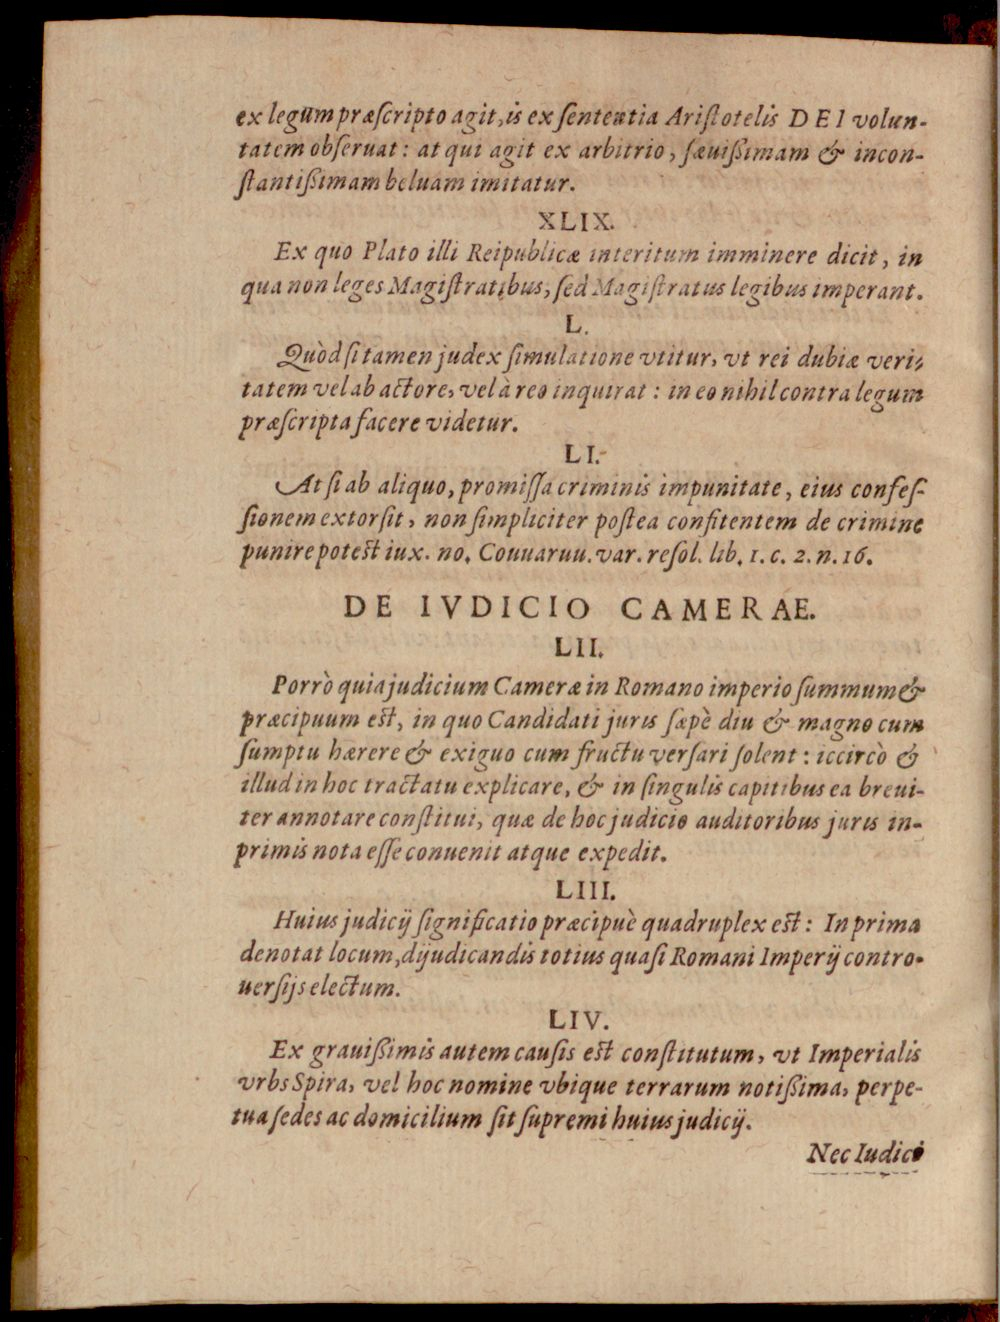 ex legum præſcripto agit, is ex ſententia Ariſtotelis DEI volun-
tatem obſeruat: at qui agit ex arbitrio, ſæuißimam & incon-
ſtantißimam beluam imitatur.
XLIX.
Ex quo Plato illi Reipublicæ interitum imminere dicit, in
qua non leges Magiſtratibus, ſed Magiſtratus legibus imperant.
L.
Quòd ſi tamen judex ſimulatione vtitur, vt rei dubiæ veri-
tatem vel ab actore, vel à reo inquirat: in eo nihil contra legum
præſcripta facere videtur.
LI.
At ſi ab aliquo, promiſſa criminis impunitate, eius confeſ-
ſionem extorſit, non ſimpliciter poſtea confitentem de crimine
punire poteſt iux. no. Couuaruu. var. reſol. lib. 1. c. 2. n. 16.
DE IVDICIO CAMERAE.
LII.
Porrò quia judicium Cameræ in Romano imperio ſummum &
præcipuum eſt, in quo Candidati juris ſæpè diu & magno cum
ſumptu hærere & exiguo cum fructu verſari ſolent: iccircò &
illud in hoc tractatu explicare, & in ſingulis capitibus ea breui-
ter annotare conſtitui, quæ de hoc judicio auditoribus juris in-
primis nota eſſe conuenit atque expedit.
LIII.
Huius judicij ſignificatio præcipuè quadruplex eſt: In prima
denotat locum, dijudicandis totius quaſi Romani Imperij contro-
uerſijs electum.
LIV.
Ex grauißimis autem cauſis eſt conſtitutum, vt Imperialis
vrbs Spira, vel hoc nomine vbique terrarum notißima, perpe-
tua ſedes ac domicilium ſit ſupremi huius judicij.
Nec Iudici